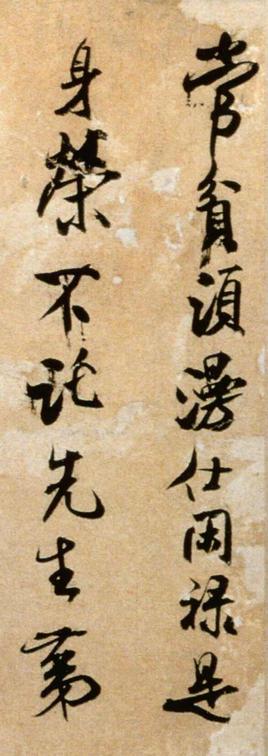 常貧須漫仕閑祿是
身榮不託先生第